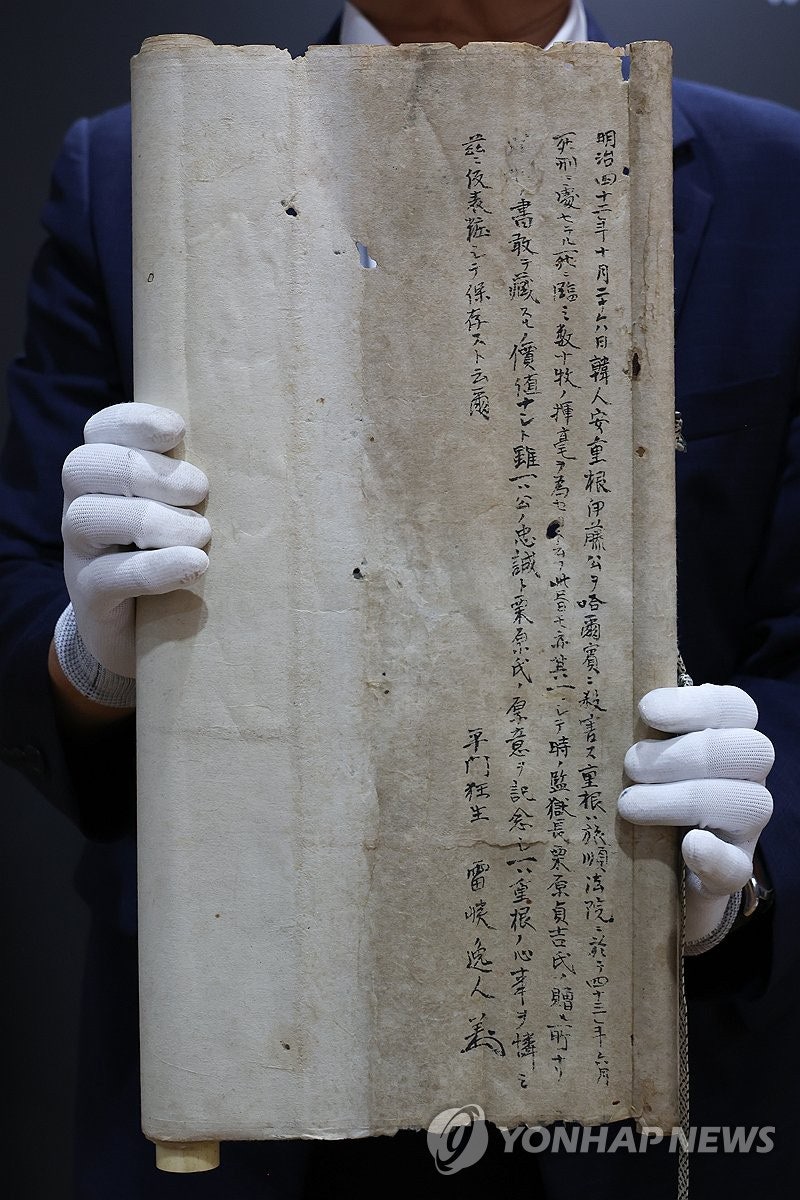 明治四十二年十月二十六日韓人安重根伊藤公ヲ哈爾賓ニ殺害ス重根ハ旅順法院ニ於テ四十三年六月
死刑ニ處セラル死ニ臨ミ数十牧ノ揮毫ヲ為セ 亦其一ニシテ時ノ監獄長栗原貞吉氏ノ贈ル所ナリ
ノ書敢テ藏スルノ價値ナシト雖一ハ公ノ忠誠ト栗原氏ノ厚意ヲ記念シ一ハ重根ノ心事ヲ憐ミ
茲ニ仮表粧シテ保存スト云爾
平門狂生 雷 逸人
YONHAP NEWS